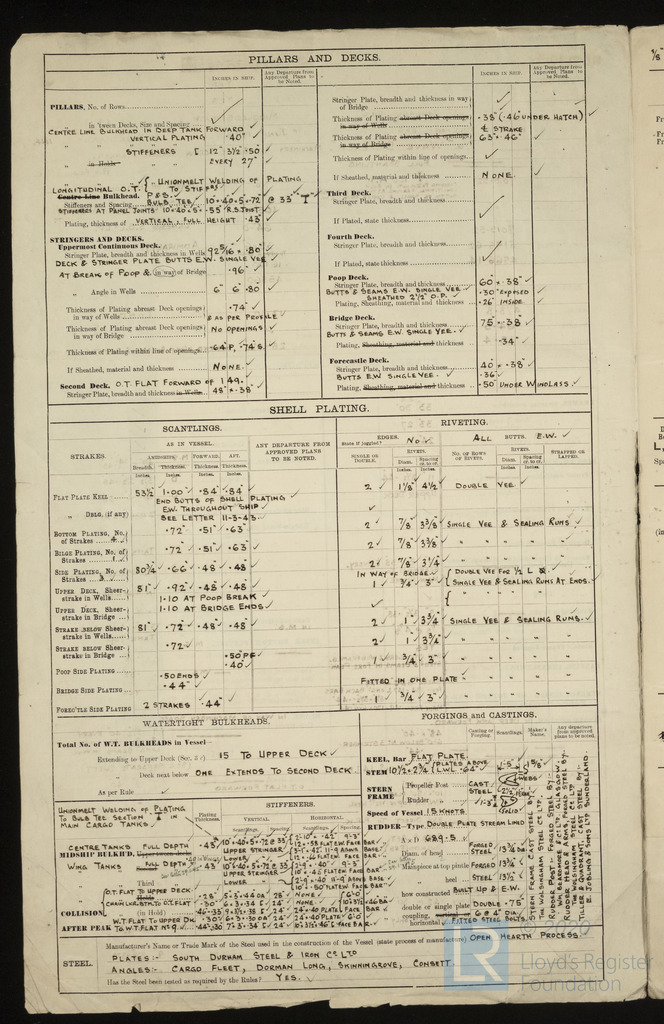 PILLARS AND DECKS.
INCHES IN SHIP.
Any Departure from Approved Plans to be Noted.
PILLARS, No. of Rows
in 'tween Decks, Size and Spacing
CENTRE LINE BULKHEAD IN DEEP TANK FORWARD
VERTICAL PLATING .40"
STIFFENERS [ 12" 3½" .50
in Holds EVERY 27"
" { - UNIONMELT WELDING OF PLATING
LONGITUDINAL O.T. { TO STIFFRS
Centre Line Bulkhead. P & S.
Stiffeners and Spacing BULB TEE 10.40.5.72 @ 33" "T"
STIFFENERS AT PANEL JOINTS 10.40.5.55 R.S. JOIST
Plating, thickness of VERTICAL, FULL HEIGHT .43
STRINGERS AND DECKS.
Uppermost Continuous Deck.
Stringer Plate, breadth and thickness in Wells 92 5/16 × .80
DECK & STRINGER PLATE BUTTS E.W. SINGLE VEE
AT BREAK OF POOP & in way of Bridge .96"
" Angle in Wells 6" 6" .80
Thickness of Plating abreast Deck openings in way of Wells .74" & AS PER PROFILE
Thickness of Plating abreast Deck openings in way of Bridge NO OPENINGS
Thickness of Plating within line of openings .64 P, .74 S.
If Sheathed, material and thickness NONE.
Second Deck. O.T. FLAT FORWARD OF 149.
Stringer Plate, breadth and thickness in Wells 48" × .38
INCHES IN SHIP
Any Departure from Approved Plans to be Noted.
Stringer Plate, breadth and thickness in way of Bridge
Thickness of Plating abreast Deck openings in way of Wells .38 (.46 UNDER HATCH)
Thickness of Plating abreast Deck openings in way of Bridge ℄ STRAKE 63" .46"
Thickness of Plating within line of openings
If Sheathed, material and thickness NONE.
Third Deck.
Stringer Plate, breadth and thickness
If Plated, state thickness
Fourth Deck.
Stringer Plate, breadth and thickness
If Plated, state thickness
Poop Deck.
Stringer Plate, breadth and thickness 60" × .38"
BUTTS & SEAMS E.W. SINGLE VEE .30" EXPOSED
SHEATHED 2½" O.P.
Plating, Sheathing, material and thickness .26" INSIDE
Bridge Deck.
Stringer Plate, breadth and thickness 75 × .38
BUTTS & SEAMS E.W. SINGLE VEE.
Plating, Sheathing, material and thickness .34"
Forecastle Deck.
Stringer Plate, breadth and thickness 40" × .38"
BUTTS E.W. SINGLE VEE. .36"
Plating, Sheathing, material and thickness .50" UNDER WINDLASS.
SHELL PLATING.
SCANTLINGS.
RIVETING.
STRAKES.
AS IN VESSEL.
AMIDSHIPS. FORWARD. AFT.
Breadth. Thickness. Thickness. Thickness.
Inches. Inches. Inches. Inches.
ANY DEPARTURE FROM APPROVED PLANS TO BE NOTED.
EDGES.
State if joggled? NO
ALL BUTTS. E.W.
SINGLE OR DOUBLE.
RIVETS.
Diam. Spacing cr. to cr.
Inches. Inches.
NO. OF ROWS OF RIVETS.
RIVETS.
Diam. Spacing cr. to cr.
STRAPPED OR LAPPED.
FLAT PLATE KEEL 53½ 1.00 .84 .84 2 1⅛ 4½ DOUBLE VEE
END BUTTS OF SHELL PLATING
" DBLG. (if any) E.W. THROUGHOUT SHIP
SEE LETTER 11-3-43
BOTTOM PLATING, No. of Strakes 4 .72" .51" .63 2 7/8 3⅜ SINGLE VEE & SEALING RUNS
BILGE PLATING, No. of Strakes 1 .72" .51" .63" 2 7/8 3⅜ " " "
SIDE PLATING, No. of Strakes 80¾ .66" .48" .48" 2 7/8 3¼ " " "
UPPER DECK, Sheerstrake in Wells 81" .92" .48" .48" IN WAY OF BRIDGE 1 3/4" 3" { DOUBLE VEE FOR ½ L { SINGLE VEE & SEALING RUNS AT ENDS.
UPPER DECK, Sheerstrake in Bridge 1.10 AT POOP BREAK
1.10 AT BRIDGE ENDS
STRAKE BELOW SHEERstrake in Wells 81" .72" .48" .48" 2 1" 3¾ SINGLE VEE & SEALING RUNS.
STRAKE BELOW SHEERstrake in Bridge .72" 2 1" 3¾ " " "
POOP SIDE PLATING .50 PF .40" 1 3/4" 3" " " "
BRIDGE SIDE PLATING .50 ENDS .44" FITTED IN ONE PLATE
FOREC'TLE SIDE PLATING 2 STRAKES .44" 1 3/4" 3" " " "
WATERTIGHT BULKHEADS.
Total No. of W.T. BULKHEADS in Vessel—
Extending to Upper Deck 15 TO UPPER DECK
Deck next below ONE EXTENDS TO SECOND DECK
As per Rule
UNIONMELT WELDING OF PLATING
TO BULB TEE SECTION IN
MAIN CARGO TANKS
Plating Thickness
STIFFENERS.
VERTICAL. HORIZONTAL.
Scantlings. Spacing. Scantlings. Spacing.
CENTRE TANKS FULL DEPTH .43
MIDSHIP BULKH'D,
UPPER STRINGER
LOWER
WING TANKS FULL DEPTH .43
UPPER STRINGER
LOWER
Third
O.T. FLAT TO UPPER DECK .28"
CHAIN LKR. BTM. TO O.T. FLAT .30"
COLLISION (in Hold)
W.T. FLAT TO UPPER DK .30"
AFTER PEAK TO W.T. FLAT NO 9
FORGINGS and CASTINGS.
Casting or Forging. Scantlings. Maker's Name. Any departure from approved plans to be noted.
KEEL, Bar FLAT PLATE.
STEM 10½ × 2¾ { PLATES ABOVE L.W.L. .64"
STERN FRAME { Propeller Post CAST STEEL
Rudder "
Speed of Vessel 15 KNOTS
RUDDER—Type DOUBLE PLATE STREAM LINED
A × D 689.5
Diam. of head FORGED STEEL 13¾
Mainpiece at top pintle FORGED 13¾
" heel STEEL 13½
how constructed BUILT UP & E.W.
double or single plate DOUBLE .75
coupling, vertical or horizontal 6 @ 4" DIA. FITTED STEEL BOLTS
STERN FRAME CAST STEEL BY:-
THE WOLSINGHAM STEEL CO LTD.
RUDDER POST: FORGED STEEL BY:-
WM. BEARDMORE & CO LTD. GLASGOW.
RUDDER HEAD & ARMS, FORGED STEEL BY:-
WOLSINGHAM STEEL CO LTD
TILLER & QUADRANT, CAST STEEL BY:-
E. JOBLING & SONS LTD SUNDERLAND
STEEL.
Manufacturer's Name or Trade Mark of the Steel used in the construction of the Vessel (state process of manufacture) OPEN HEARTH PROCESS.
PLATES:- SOUTH DURHAM STEEL & IRON CO LTD
ANGLES:- CARGO FLEET, DORMAN LONG, SKINNINGROVE, CONSETT.
Has the Steel been tested as required by the Rules? YES.
LR
© 2020
Lloyd's Register
Foundation